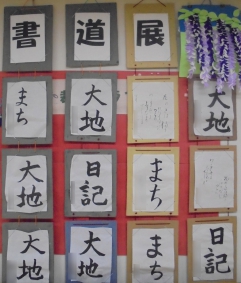 書道展
まち
大地
大地
大地
日記
まち
大地
大地
まち
日記